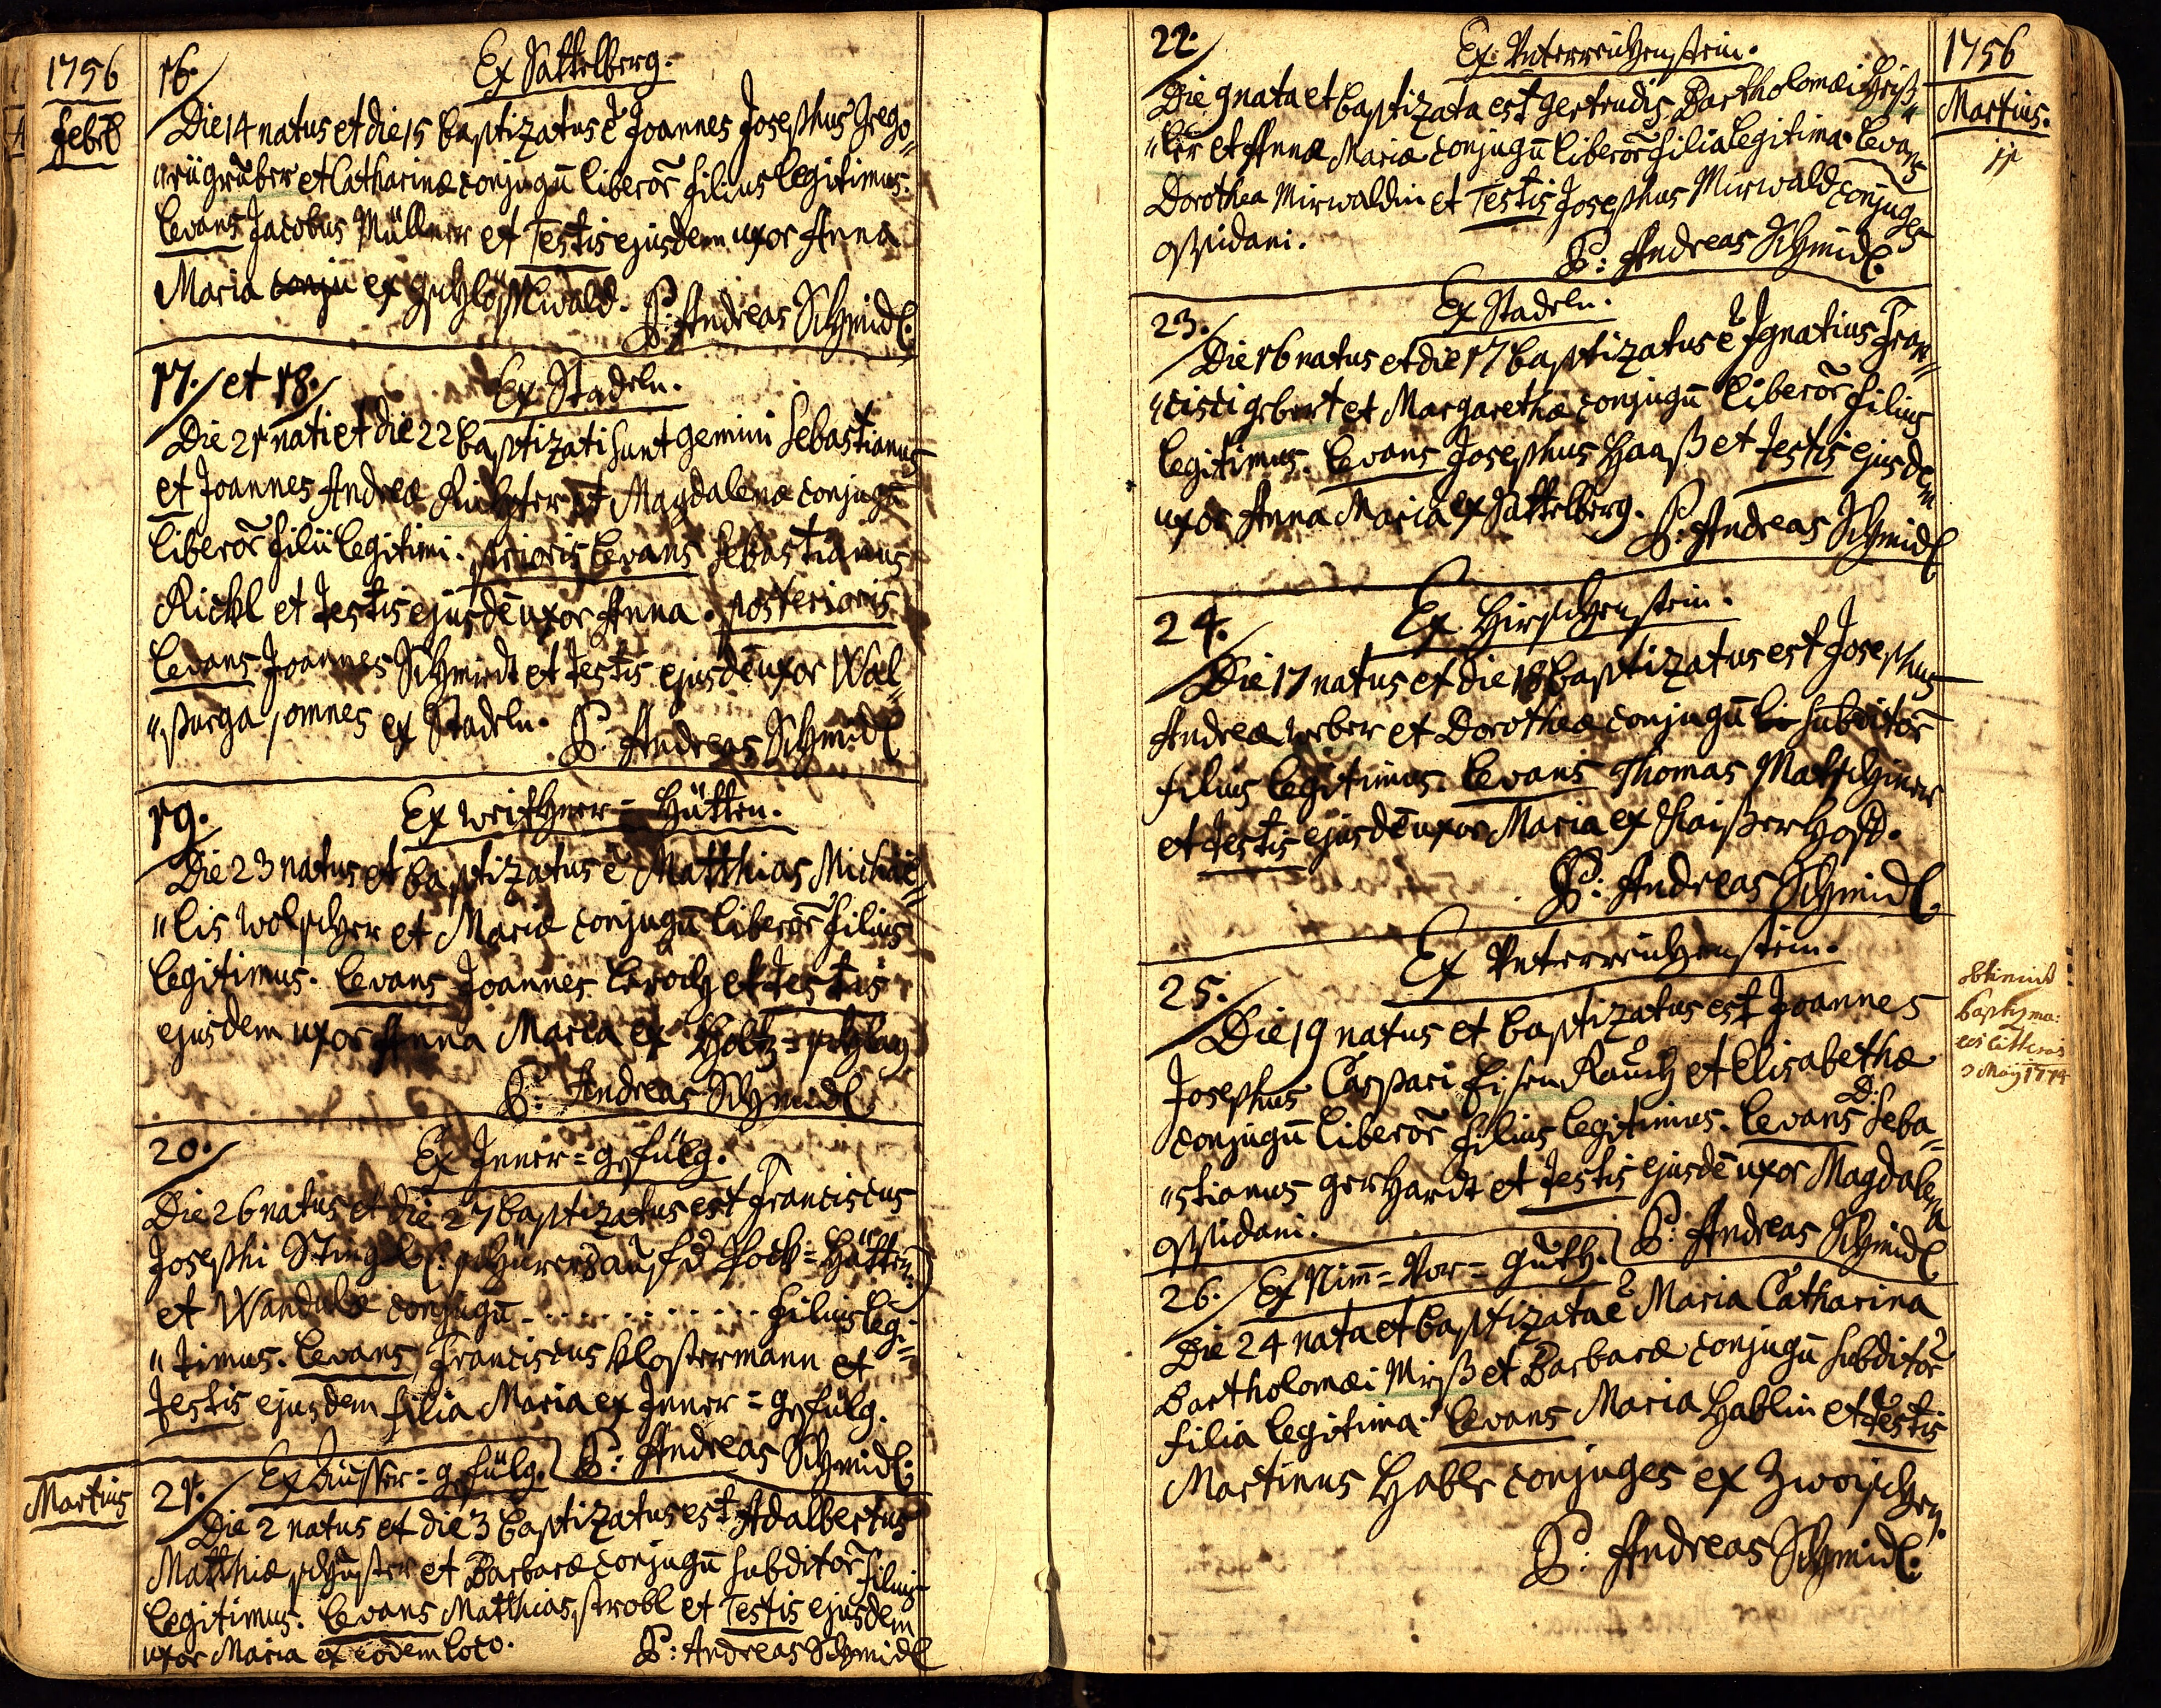 1756
Febrȩ
16.
Ex Sattelberg.
Die 14 natus et die 15 baptizatus ẽ Joannes Josephus Grego=
"rii gruber et Catharinæ conjugũ liberor̃ filius legitimus.
Levans Jacobus Müllner et Testis ejusdem uxor Anna
Maria conju ex gschlösslwald. P: Andreas Schmidl.
17. et 18.
Ex Stadeln.
Die 21 nati et die 22 baptizati sunt gemini Sebastianus
et Joannes Andreæ Richter et Magdalenæ conjugũ
liberor̃ filii legitimi. prioris Levans Sebastianus
Rickl et Testis ejusdẽ uxor Anna. posterioris
Levans Joannes Schmidt et Testis ejusdẽ uxor Wal=
"purga, omnes ex Stadeln. P: Andreas Schmidl
19.
Ex Weithner=Hütten.
Die 23 natus et baptizatus ẽ Matthias Michaë=
"lis Wolscher et Mariæ conjugũ liberor̃ filius
legitimus. Levans Joannes et Testis
ejusdem uxor Anna Maria ex Holtz=schlag
P: Andreas Schmidl
20.
Ex Inner=gefülg.
Die 26 natus et die 27 baptizatus est Franciscus
Josephi Stingl schürers auf d Pock=Hütten
et Wandulæ conjugũ - . . . . . . . . . . . . . filius leg=
"timus. Levans Franciscus Klostermann et
Testis ejusdem filia Maria ex Inner=gefülg.
P: Andreas Schmidl.
Martius
21.
Ex Ausser=gefülg.
Die 2 natus et die 3 baptizatus est Adalbertus
Matthiæ schuster et Barbaræ conjugũ subditor̃ filius
legitimus. Levans Matthias strobl et Testis ejusdem
uxor Maria ex eodem loco. P: Andreas Schmidl
1756
Martius.
22.
Ex Unterreichenstein.
Die 9 nata et baptizata est gertrudis Bartholomæi
"ler et Annæ Mariæ conjugũ liberor̃ filia legitima. Levans
Dorothea Mirwaldin et Testis Josephus Mirwald conjuges
oppidani.
P: Andreas Schmidl.
23.
Ex Stadeln.
Die 16 natus et die 17 baptizatus ẽ Ignatius Fran=
"cisci gebert et Margarethæ conjugũ liberor̃ filius
legitimus. Levans Josephus Haas et Testis ejusdem
uxor Anna Maria ex Sattelberg.
P: Andreas Schmidl
24.
Ex Hirschenstein.
Die 17 natus et die 18 baptizatus est Josephus
Andreæ weber et Dorotheæ conjugũ li subditor̃
filius legitimus. Levans Thomas Matschiner
et Testis ejusdẽ uxor Maria ex Kaiserhoff.
P: Andreas Schmidl.
25.
Ex Unterreichenstein.
Die 19 natus et baptizatus est Joannes
Josephus Caspari Eisen Rauch et Elisabethæ
conjugũ liberor̃ filius legitimus. Levans D: Seba=
"stianus gerhardt et Testis ejusdẽ uxor Magdalena
oppidani.
P: Andreas Schmidl
obtinuit
baptizma:
les litteras
3 May 1774
26.
Ex Nim̃=Vor=guth.
Die 24 nata et baptizata ẽ Maria Catharina
Bartholomæi Mirß et Barbaræ conjugũ subditor̃
filia legitima. Levans Maria Hablin et Testis
Martinus Habl conjuges ex Zwoischen.
P: Andreas Schmidl.